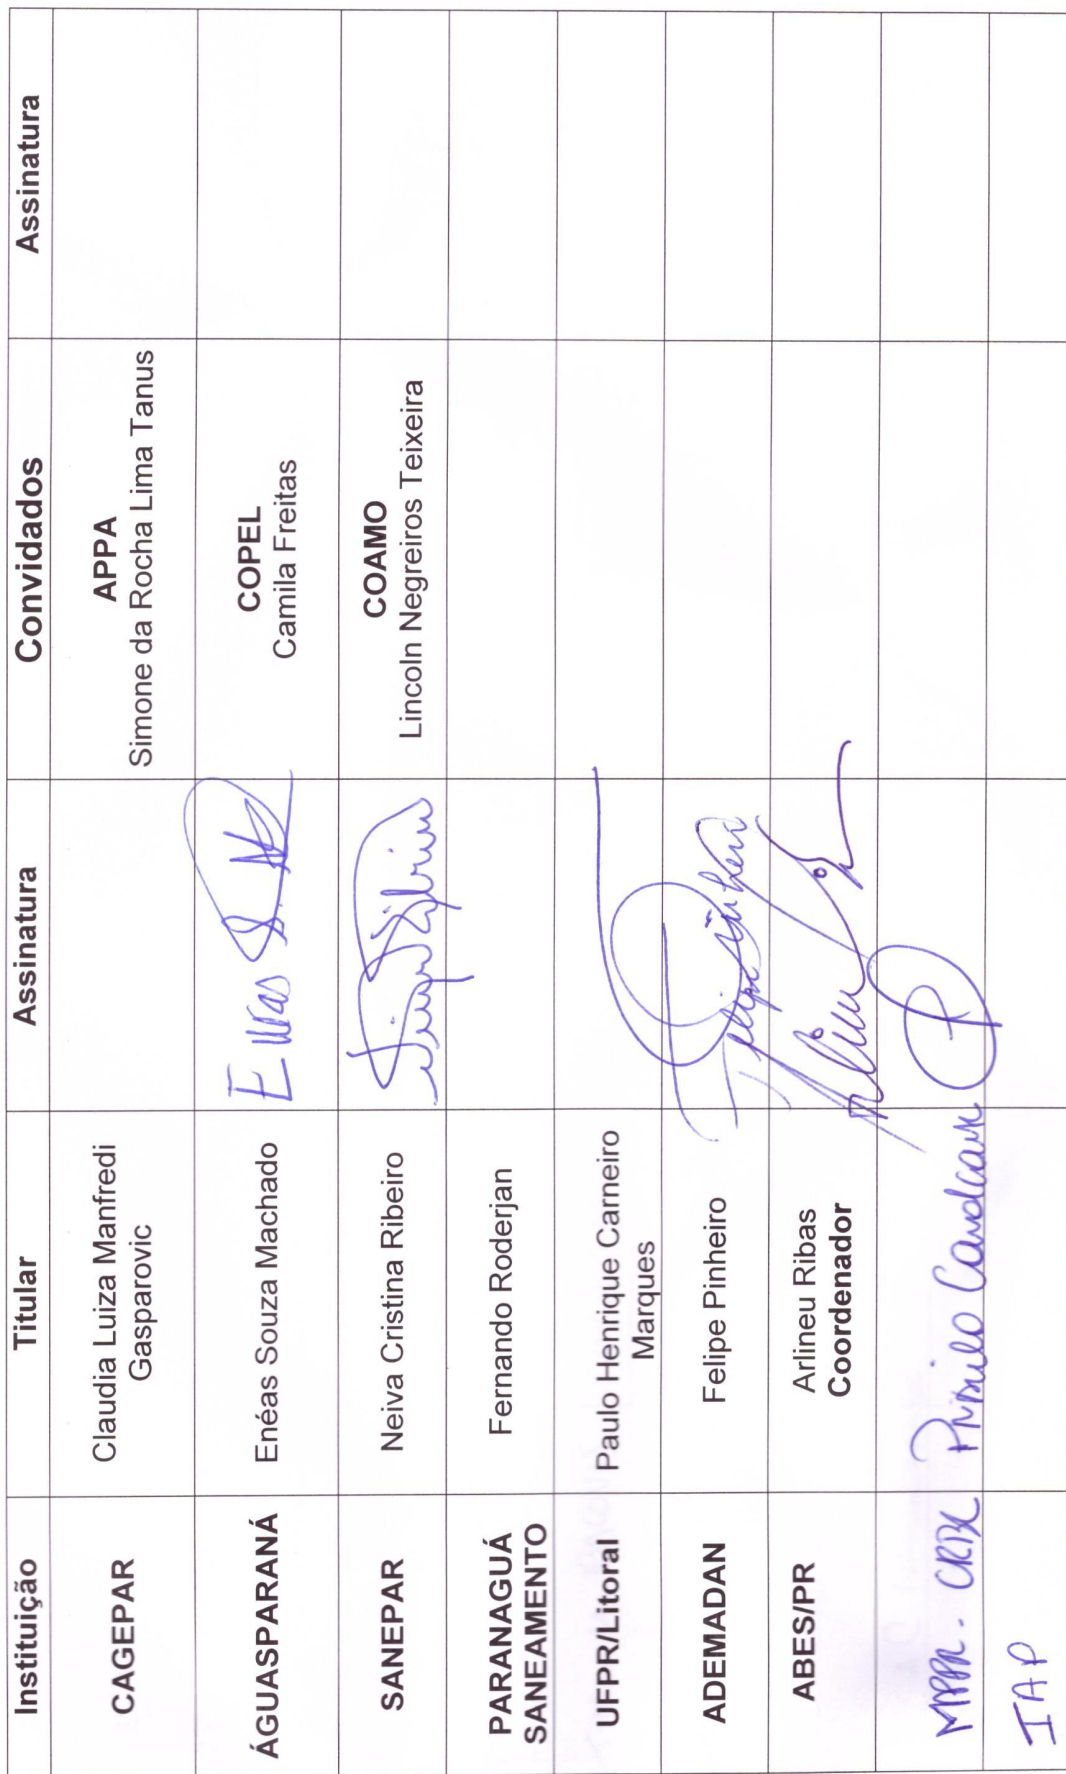 Instituição Titular Assinatura Convidados Assinatura
CAGEPAR Claudia Luiza Manfredi APPA
Gasparovic Simone da Rocha Lima Tanus
ÁGUASPARANÁ Enéas Souza Machado Eneas COPEL
Camila Freitas
SANEPAR Neiva Cristina Ribeiro COAMO
Lincoln Negreiros Teixeira
PARANAGUÁ Fernando Roderjan
SANEAMENTO
UFPR/Litoral Paulo Henrique Carneiro
Marques
ADEMADAN Felipe Pinheiro Felipe Pinheiro
ABES/PR Arlineu Ribas
Coordenador
MPPR - CRBL Priscila Cavalcante
IAP